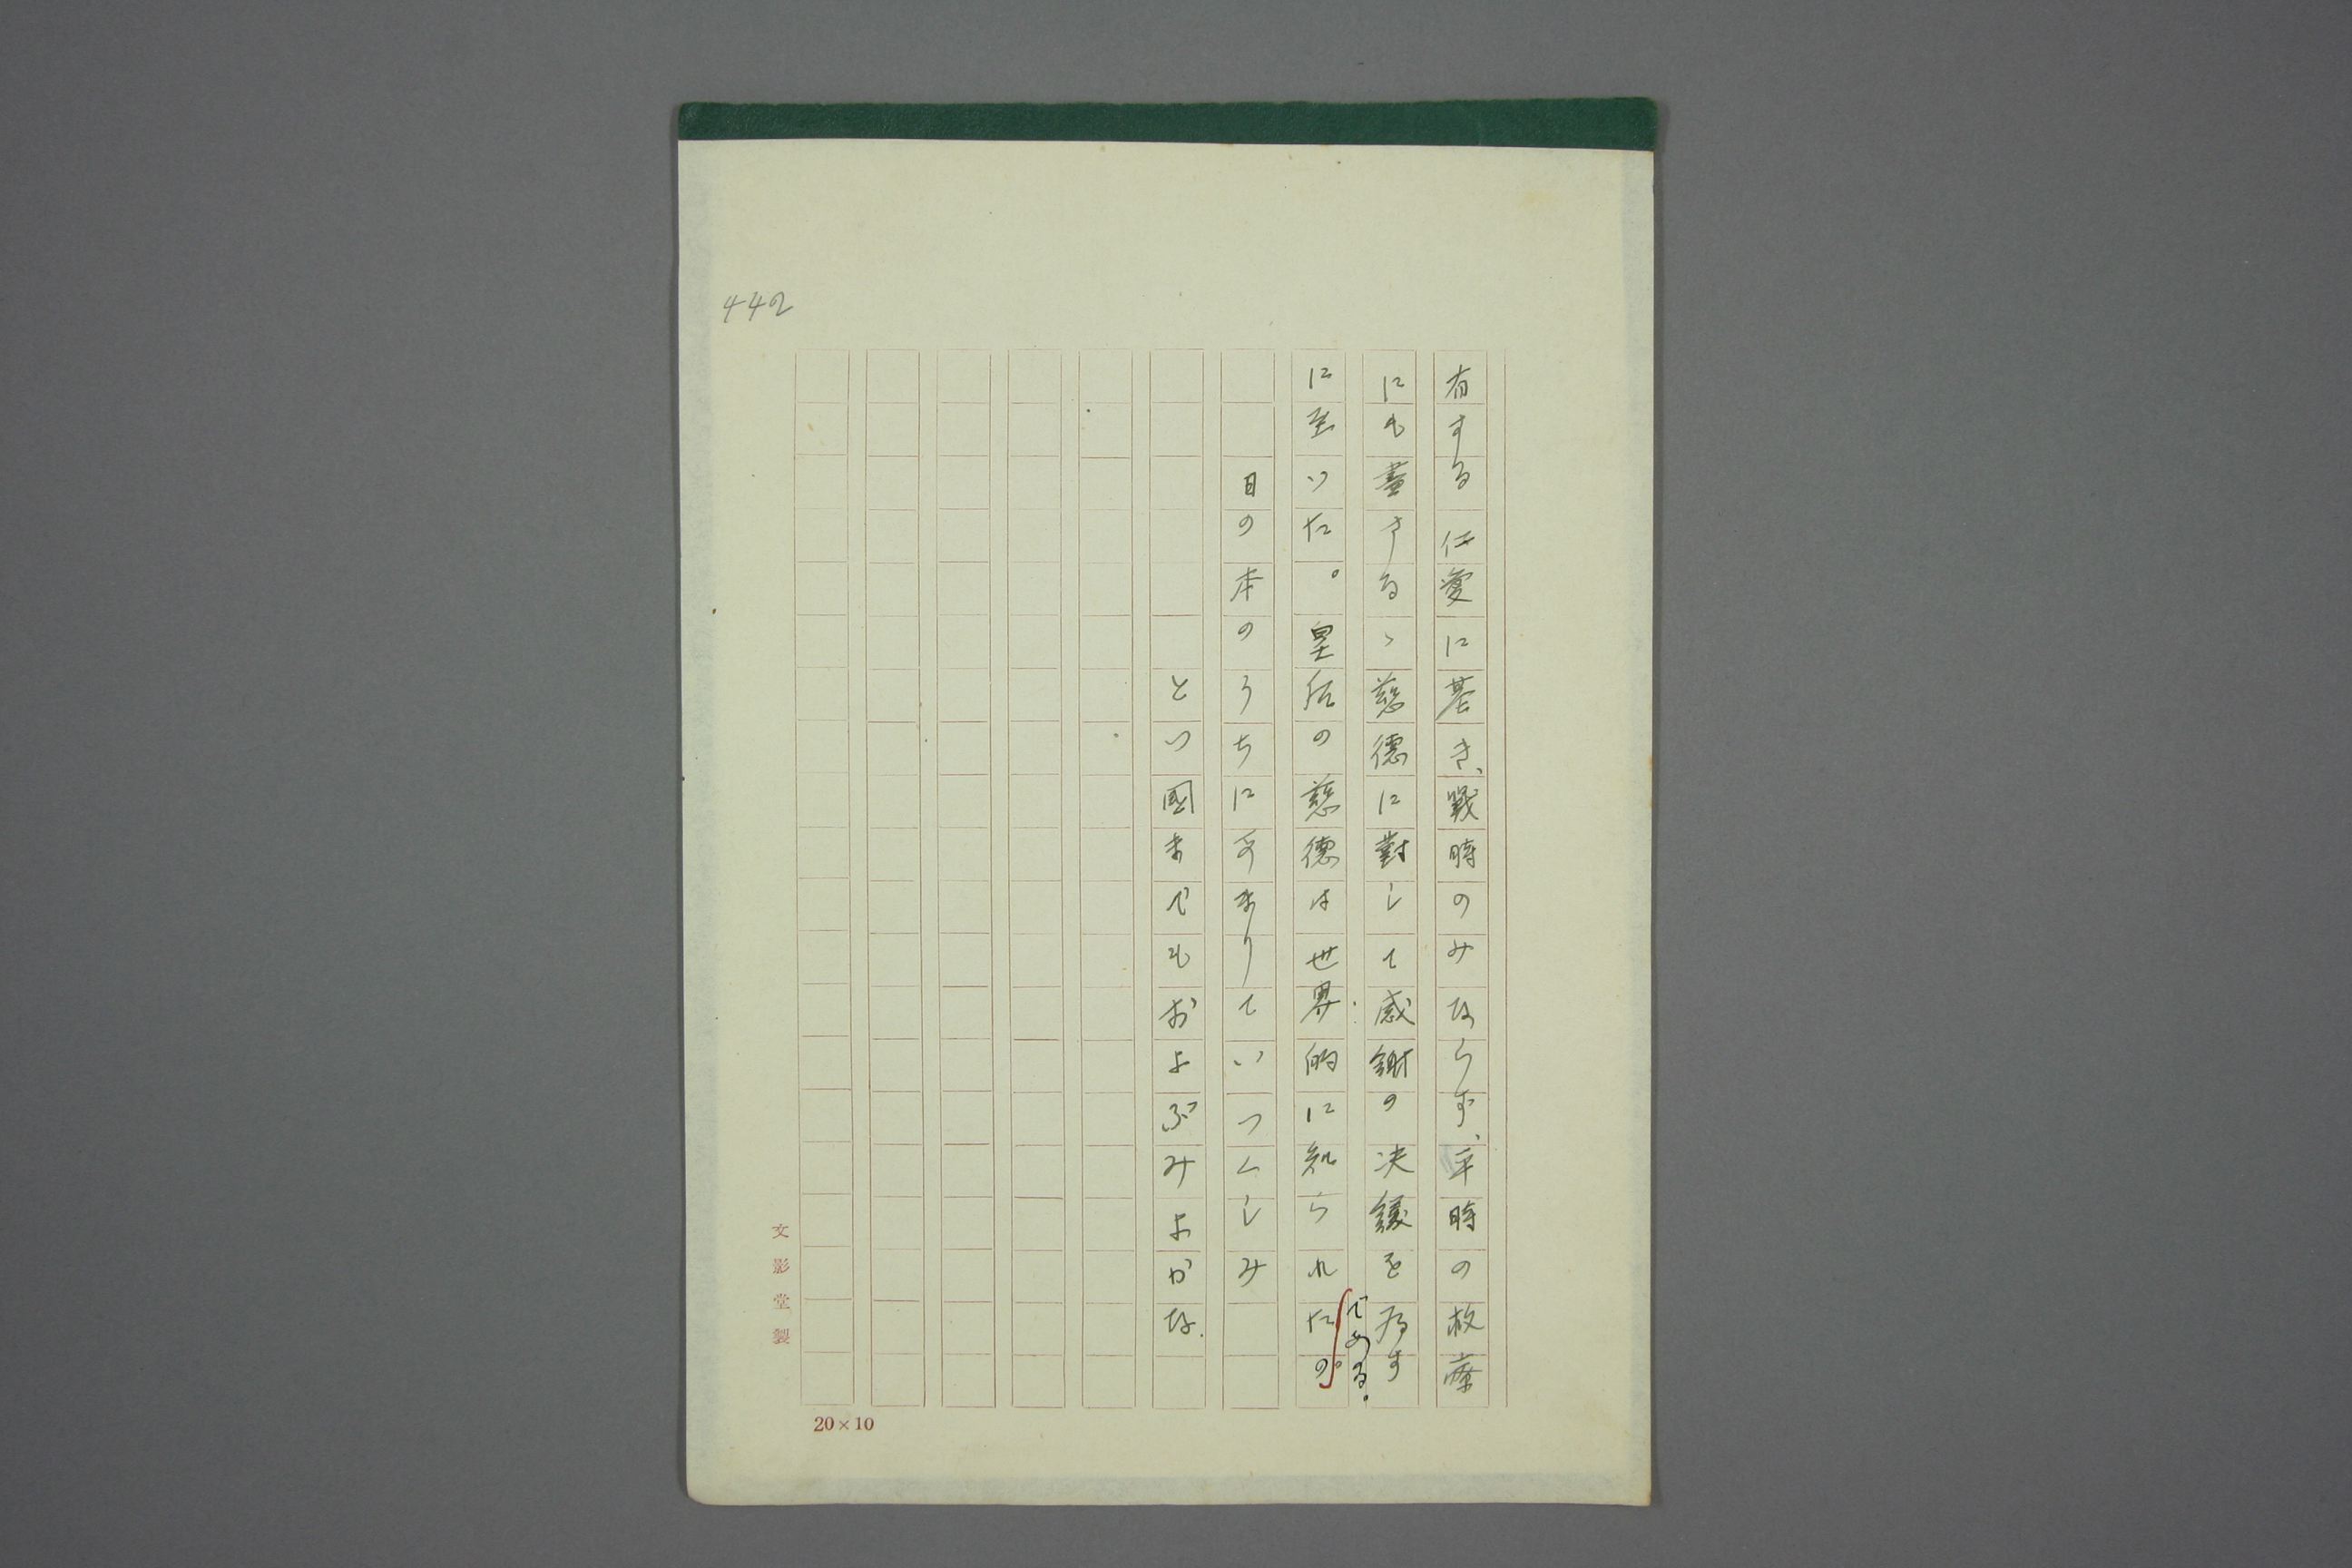 442
有する仁愛に基き、戰時のみならず、平時の救療
にも盡さるゝ慈德に對して感謝の決議を爲す
に至いた。皇后の慈德は世界的に知られたの。
である。
日の本のうちにあまりていつくしみ
とつ國までもおよぶみよかな.
文影堂製
20×10